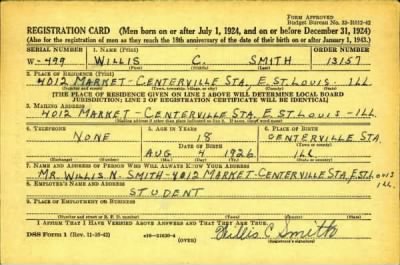 FORM APPROVED
Budget Bureau No. 33-R012-42
REGISTRATION CARD (Men born on or after July 1, 1924, and on or before December 31, 1924)
(Also for the registration of men as they reach the 18th anniversary of the date of their birth on or after January 1, 1943.)
SERIAL NUMBER 1. NAME (Print) ORDER NUMBER
W-499 WILLIS C. SMITH 13157
2. PLACE OF RESIDENCE (Print)
4012 MARKET-CENTERVILLE STA. E. ST. LOUIS - ILL
[THE PLACE OF RESIDENCE GIVEN ON LINE 2 ABOVE WILL DETERMINE LOCAL BOARD
JURISDICTION; LINE 2 OF REGISTRATION CERTIFICATE WILL BE IDENTICAL]
3. MAILING ADDRESS
4012 MARKET-CENTERVILLE STA. E. ST LOUIS - ILL
4. TELEPHONE 5. AGE IN YEARS 6. PLACE OF BIRTH
NONE 18 CENTERVILLE STA.
DATE OF BIRTH (Town or county)
AUG 4 1926 ILL
(Exchange) (Number) (Mo.) (Day) (Yr.) (State or country)
7. NAME AND ADDRESS OF PERSON WHO WILL ALWAYS KNOW YOUR ADDRESS
MR. WILLIS N. SMITH-4012 MARKET-CENTERVILLE STA, E. ST LOUIS ILL.
8. EMPLOYER'S NAME AND ADDRESS
STUDENT
9. PLACE OF EMPLOYMENT OR BUSINESS
(Number and street or R. F. D. number) (Town) (County) (State)
I AFFIRM THAT I HAVE VERIFIED ABOVE ANSWERS AND THAT THEY ARE TRUE.
DSS Form 1 (Rev. 11-16-42) (OVER) Willis C Smith
(Registrant's signature)